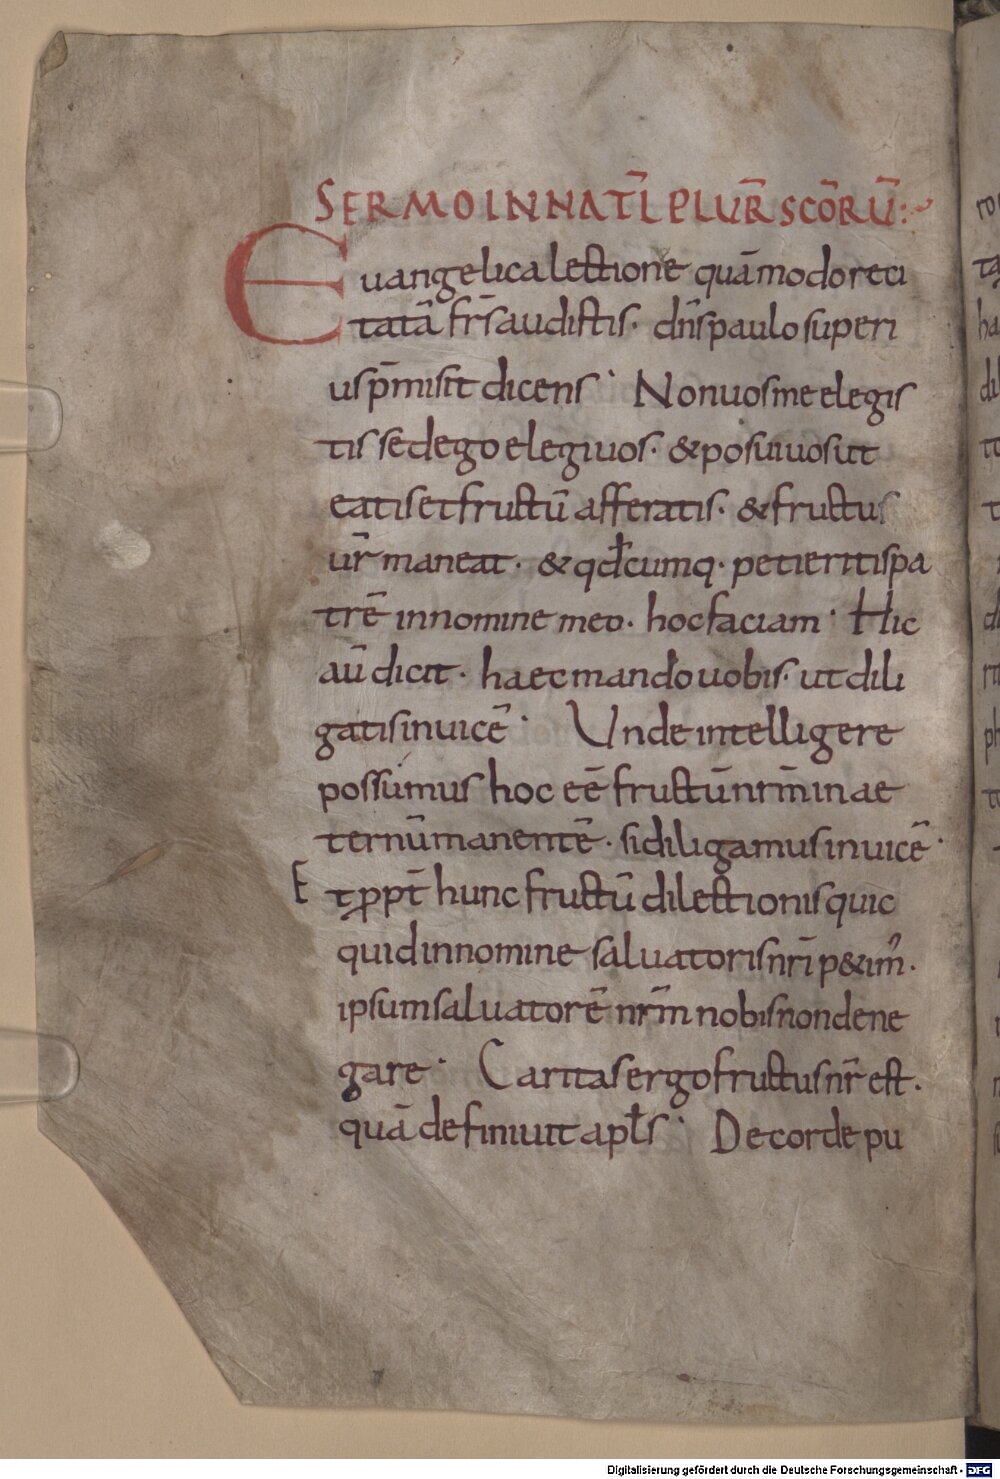 SERMO IN NAT̅L PLUR̅ SCO̅RU̅:
Euangelica lectione quā modo reci
tatā fr̄s audistis· dn̄s paulo superi
us p̄misit dicens· Non uos me elegis
tis sed ego elegi uos· & posui uos ut
eatis et fructū afferatis· & fructus
ur̄ maneat· & qđcumq· petieritis pa
trē in nomine meo· hoc faciam· Hic
aū dicit· haec mando uobis· ut dili
gatis inuicē· Unde intelligere
possumus hoc eē fructū nr̄m in ae
ternū manentē· si diligamus inuicē·
Et ꝓpt̄ hunc fructū dilectionis quic
quid in nomine saluatoris nr̄i p&im̄·
ipsum saluatorē nr̄m nobis non dene
gare· Caritas ergo fructus nr̄ est·
quā definiuit apłs· De corde pu
Digitalisierung gefördert durch die Deutsche Forschungsgemeinschaft - DFG